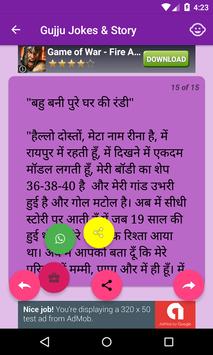 2:27
Gujju Jokes & Story
Game of War - Fire A...
DOWNLOAD
15 of 15
"बहु बनी पुरे घर की रंडी"
"हैल्लो दोस्तों, मेटा नाम रीना है, में
रायपुर में रहती हूँ, में दिखने में एकदम
मॉडल लगती हूँ, मेरी बॉडी का शेप
36-38-40 है और मेरी गांड उभरी
हुई है और गोल मटोल है। अब में सीधी
स्टोरी पर आती हूँ जब में 19 साल की
हुई
में आपको बता दूँ कि मेरे
मम्मी, पापा और में ही हूँ। में
Nice job! You're displaying a 320 x 50
test ad from AdMob.
AdMob by Google